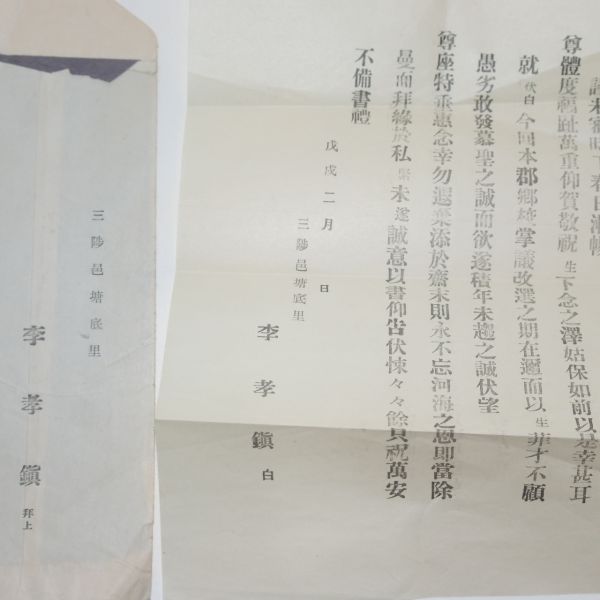 日漸暢
尊體度福趾萬重仰賀敬祝 生 下念之澤姑保如前以是幸甚耳
就 伏白 今回本郡鄉校掌議改選之期在邇而以 生 菲才不顧
愚劣敢發慕聖之誠而欲遂積年未趨之誠伏望
尊座特垂惠念幸勿遐棄添於齋末則永不忘河海之恩即當除
曼而拜緣於私 未遂誠意以書仰告伏悚々々餘只祝萬安
不備書禮
戊戌二月 日
三陟邑塘底里
李孝鎭 白
三陟邑塘底里
李孝鎭 拜上